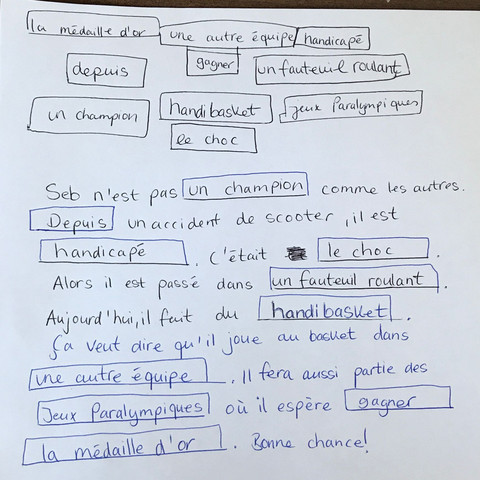 la médaille d'or une autre équipe handicapé
depuis gagner un fauteuil roulant
un champion handibasket Jeux Paralympiques
le choc
Seb n'est pas un champion comme les autres.
Depuis un accident de scooter, il est
handicapé. C'était le choc.
Alors il est passé dans un fauteuil roulant.
Aujourd'hui, il fait du handibasket.
Ça veut dire qu'il joue au basket dans
une autre équipe. Il fera aussi partie des
Jeux Paralympiques où il espère gagner
la médaille d'or. Bonne chance!